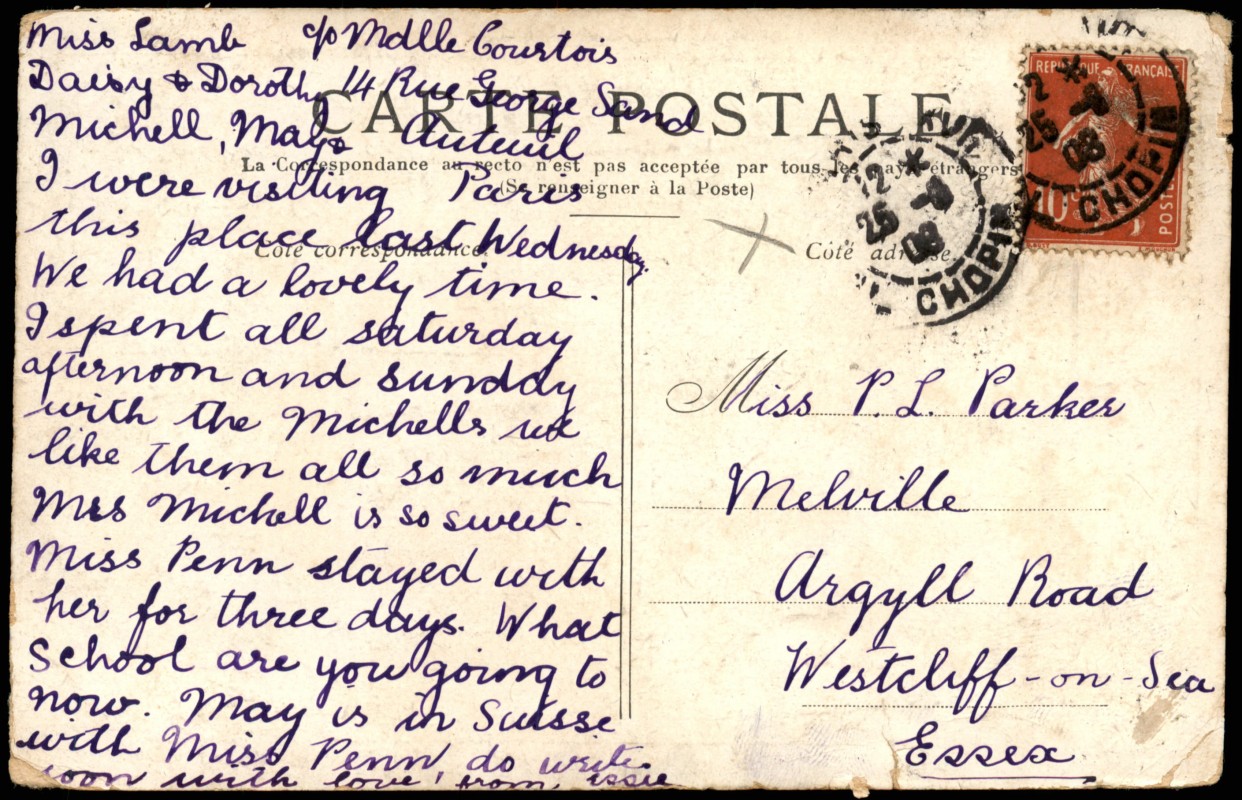 Miss Lamb c/o Mdlle Courtois
Daisy & Dorothy 14 Rue George Sand
Michell, May & Auteuil
I were visiting Paris
this place last Wednesday.
We had a lovely time.
I spent all saturday
afternoon and sunday
with the Michells we
like them all so much
Mrs Michell is so sweet.
Miss Penn stayed with
her for three days. What
School are you going to
now. May is in Suisse
with Miss Penn do write
soon with love, from
CARTE POSTALE
La Correspondance au recto n'est pas acceptée par tous les pays étrangers
(Se renseigner à la Poste)
Côté correspondance.
Côté adresse.
REPUBLIQUE FRANÇAISE
10
POSTES
12
25 - 8
08
CHOPIN
12
25 - 8
08
CHOPIN
Miss P. L. Parker
Melville
Argyll Road
Westcliff-on-Sea
Essex